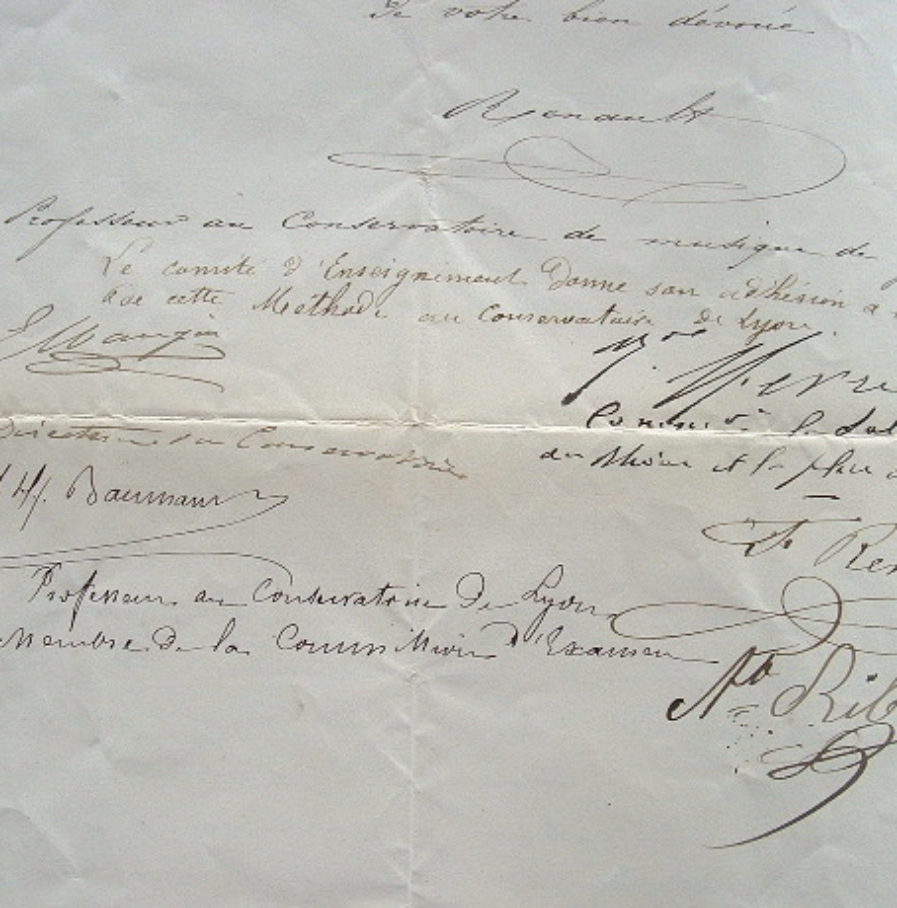 De votre bien dévoué
Renault
Professeur au Conservatoire de musique de
Le comité d'Enseignement Donne son adhésion a
de cette Methode au Conservatoire de Lyon.
E Mangin
Directeur du Conservatoire
H. Baumann
Professeur au Conservatoire De Lyon
Membre De la Commission d'Examen
du Rhône et la plus
Ren
Rib